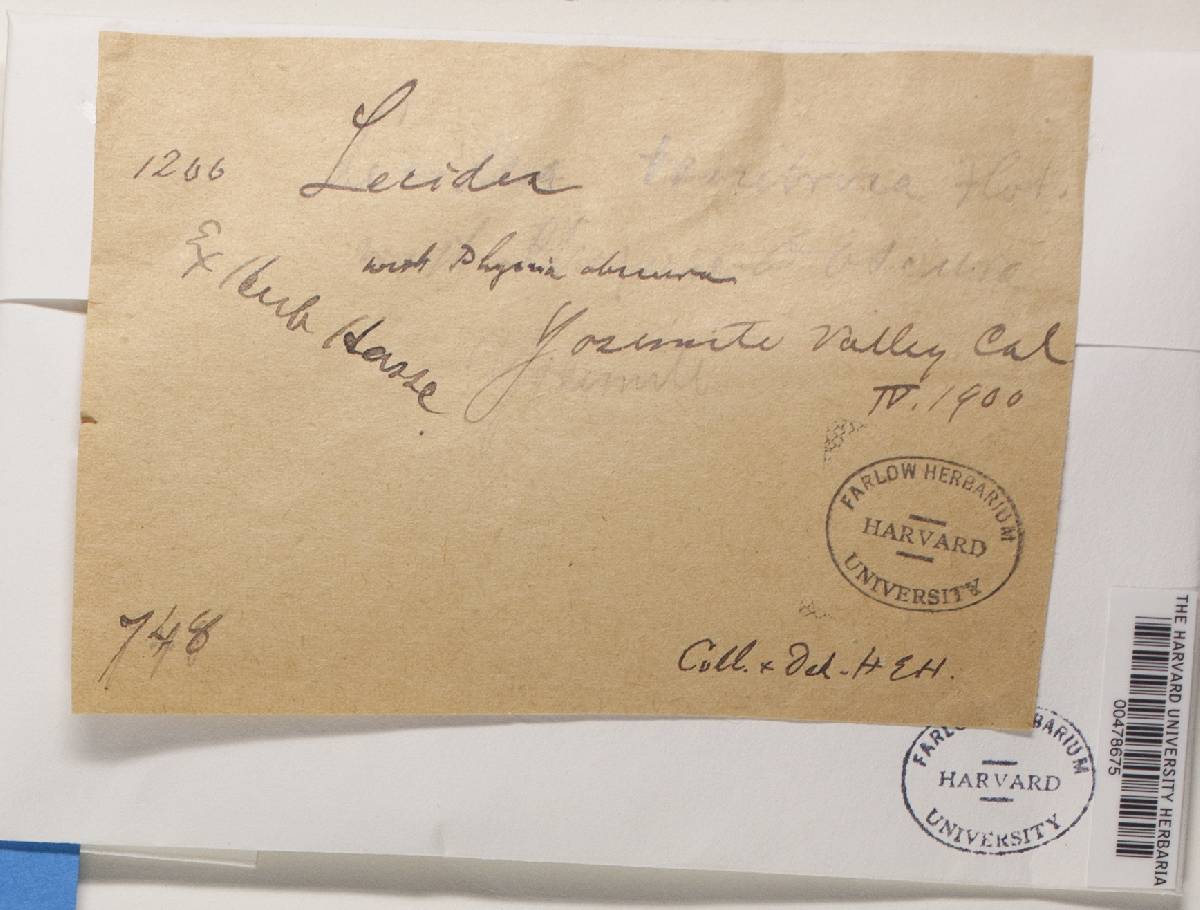 1206 Lecidea tenebrosa Flot.
with Physcia obscura
Ex Herb Hasse
Yosemite Valley Cal
IV. 1900
FARLOW HERBARIUM
HARVARD
UNIVERSITY
748
Coll. & Det. HEH.
FARLOW HERBARIUM
HARVARD
UNIVERSITY
THE HARVARD UNIVERSITY HERBARIA
00478675